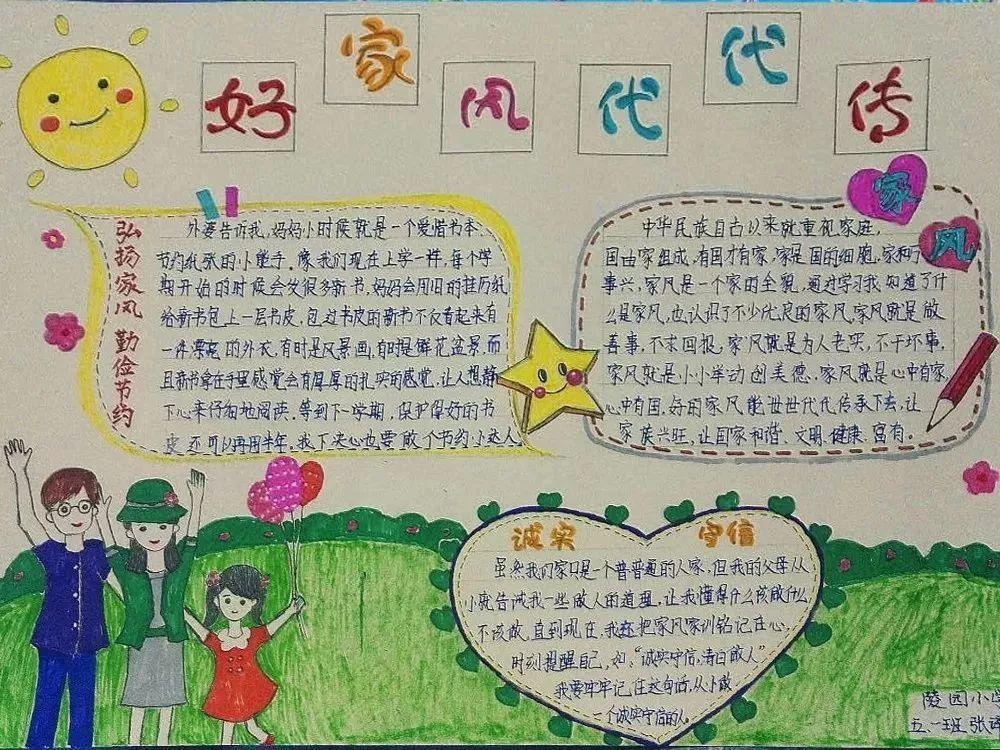 好家风代代传
弘扬家风 勤俭节约
外婆告诉我,妈妈小时候就是一个爱惜书本、
节约纸张的小能手。像我们现在上学一样,每个学
期开始的时候会发很多新书,妈妈会用旧的挂历纸
给新书包上一层书皮,包过书皮的新书不仅看起来有
一件漂亮的外衣,有时是风景画,有时是鲜花盆景,而
且新书拿在手里感觉会有厚厚的扎实的感觉,让人想静
下心来仔细地阅读。等到下一学期,保护得好的书
皮还可以再用半年。我下决心也要做个节约小达人
家风
中华民族自古以来就重视家庭,
国由家组成,有国才有家,家是国的细胞,家和万
事兴,家风是一个家的全貌,通过学习我知道了什
么是家风,也认识了不少优良的家风,家风就是做
善事,不求回报,家风就是为人老实,不干坏事,
家风就是小小举动创美德,家风就是心中有家,
心中有国,好的家风能世世代代传承下去,让
家族兴旺,让国家和谐、文明、健康、富有。
诚实 守信
虽然我们家只是一个普普通的人家,但我的父母从
小就告诫我一些做人的道理,让我懂得什么该做什么
不该做,直到现在,我还把家风家训铭记在心,
时刻提醒自己,如:“诚实守信,清白做人”
我要牢牢记住这句话,从小做
一个诚实守信的人。
陵园小学
五、一班 张